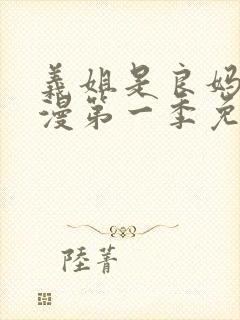 義姐是良妈
漫第一季免
陸菁